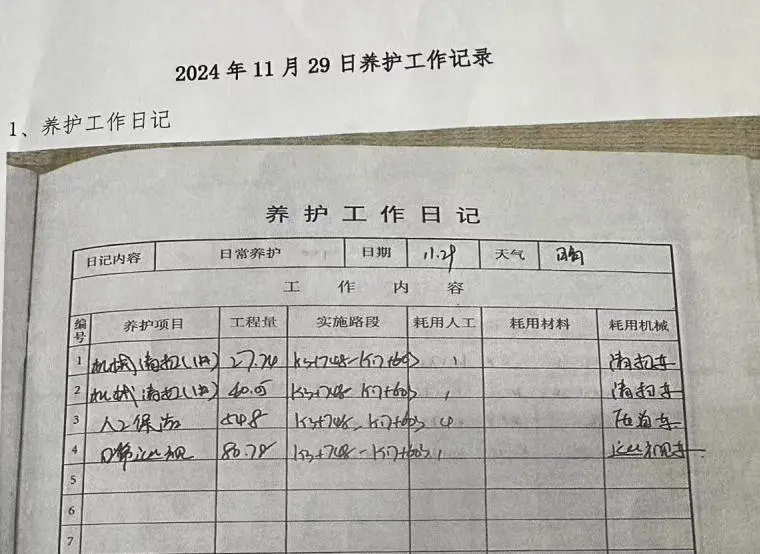 2024年11月29日养护工作记录
1、养护工作日记
养护工作日记
日记内容 日常养护 日期 11.29 天气 晴
工作内容
编号 养护项目 工程量 实施路段 耗用人工 耗用材料 耗用机械
1 机械清扫 27.74 K3+748-K17+603 1 清扫车
2 机械清扫 40.05 K3+748-K17+603 1 清扫车
3 人工保洁 548 K3+748-K17+603 4
4 日常巡视 80.78 K3+748-K17+603 1 巡视车
5
6
7